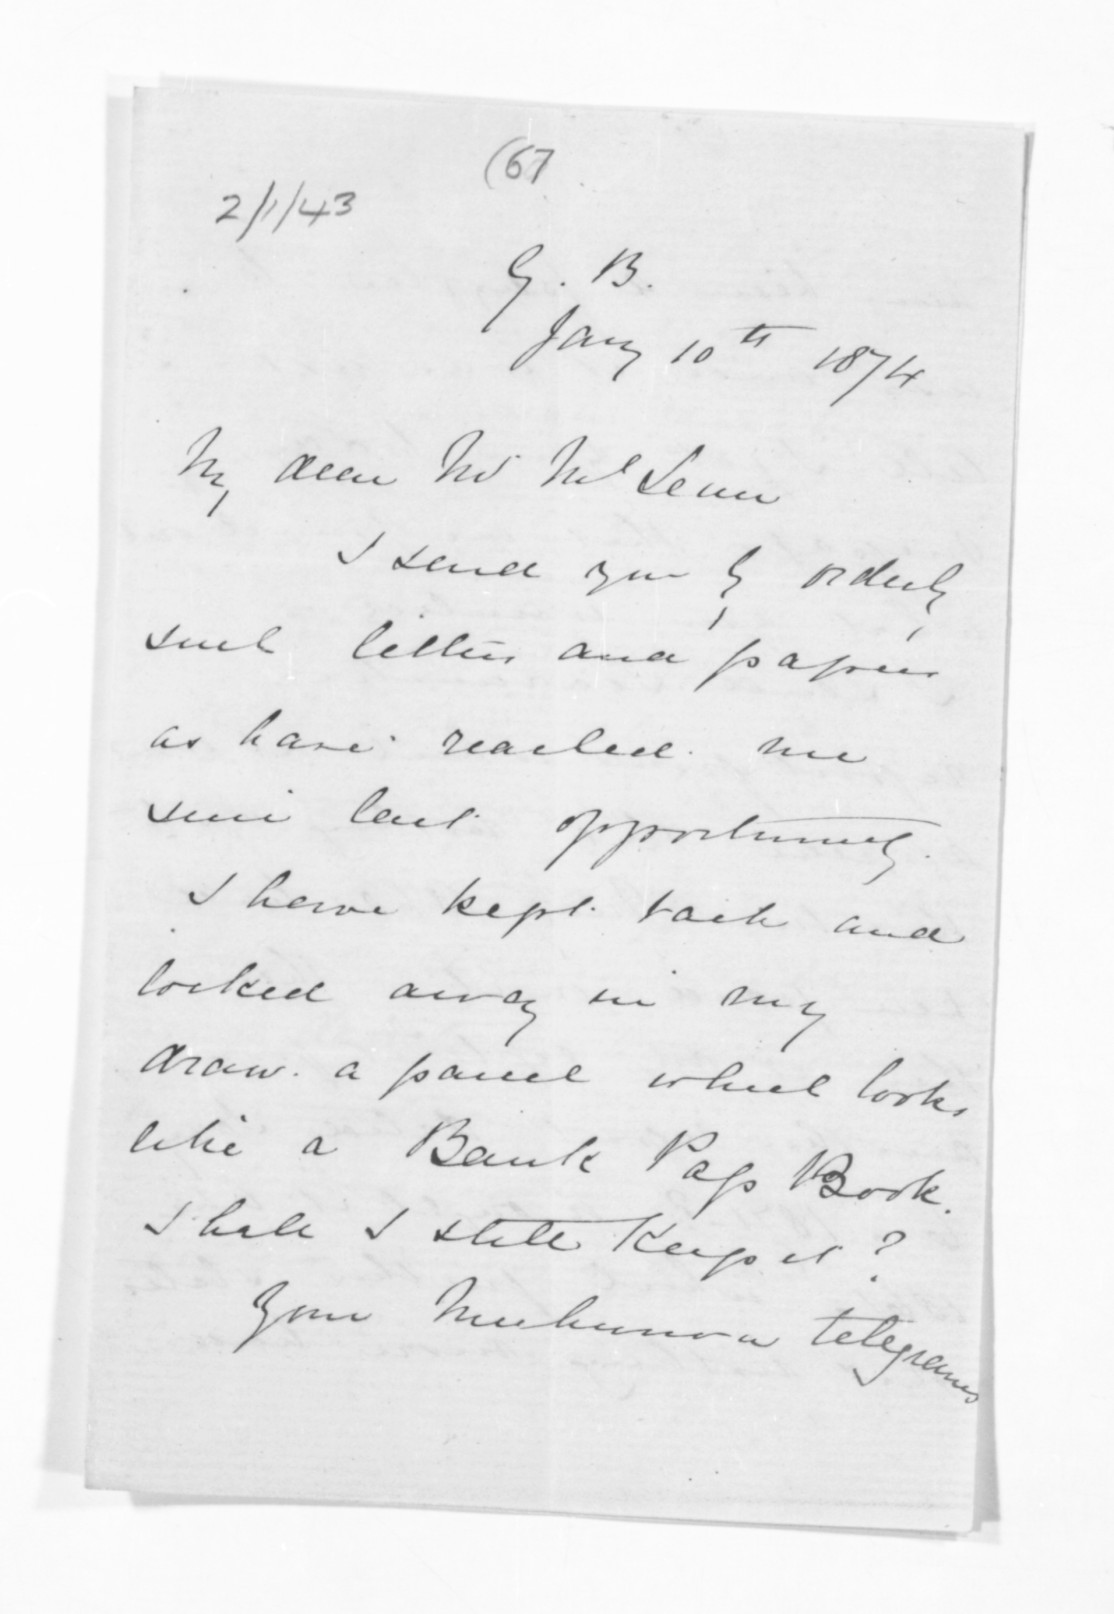 (67
2/1/43
G. B.
Jany 10th 1874
My dear Mr McLean
I send you by orderly
such letters and papers
as have reached me
since last opportunity.
I have kept back and
locked away in my
draw. a parcel which looks
like a Bank Pass Book.
Shall I still Keep it?
Your telegrams